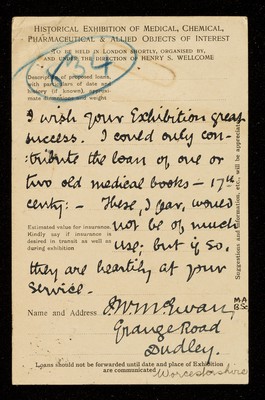 HISTORICAL EXHIBITION OF MEDICAL, CHEMICAL,
PHARMACEUTICAL & ALLIED OBJECTS OF INTEREST
TO BE HELD IN LONDON SHORTLY, ORGANISED BY,
AND UNDER THE DIRECTION OF HENRY S. WELLCOME
834
Description of proposed loans,
with particulars of date and
history (if known), approxi-
mate size and weight
I wish your Exhibition great
success. I could only con-
tribute the loan of one or
two old medical books – 17th
centy: – These, I fear, would
not be of much
use; but if so,
they are heartily at your
service.
Estimated value for insurance.
Kindly say if insurance is
desired in transit as well as
during exhibition
Suggestions and information, etc., will be appreciated
Name and Address
McEwan, M.A.
B.Sc
Grange Road
Dudley.
Worcestershire
Loans should not be forwarded until date and place of Exhibition
are communicated